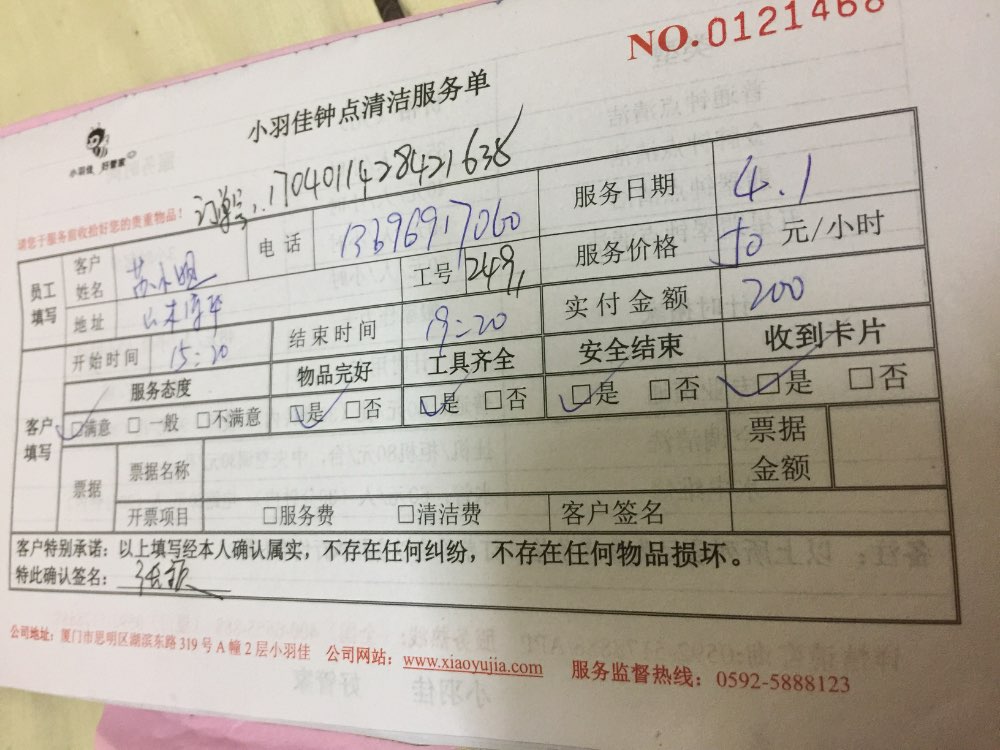 NO.0121468
小羽佳钟点清洁服务单
小羽佳 好管家
请您于服务前收拾好您的贵重物品！ 订单号:170401142842163
员工填写 客户姓名 电话 13696917060 服务日期 4.1
地址 工号 服务价格 50 元/小时
开始时间 15:20 结束时间 19:20 实付金额 200
客户填写 服务态度 物品完好 工具齐全 安全结束 收到卡片
□满意 □一般 □不满意 □是 □否 □是 □否 □是 □否 □是 □否
票据 票据名称 票据金额
开票项目 □服务费 □清洁费 客户签名
客户特别承诺：以上填写经本人确认属实，不存在任何纠纷，不存在任何物品损坏。
特此确认签名：
公司地址：厦门市思明区湖滨东路319号A幢2层小羽佳 公司网站：www.xiaoyujia.com 服务监督热线：0592-5888123